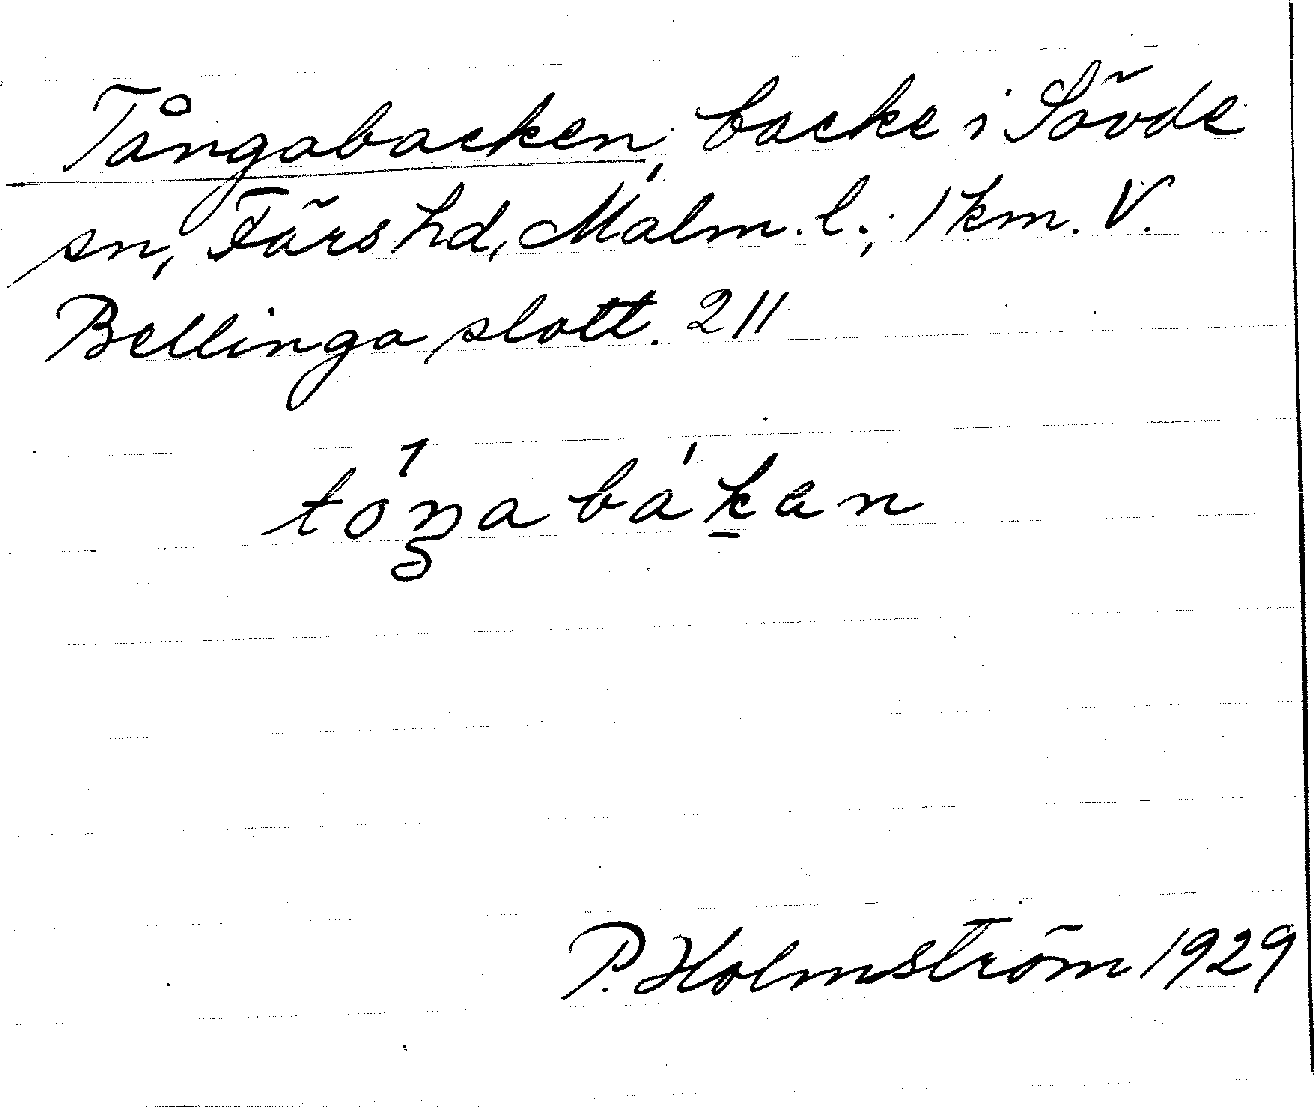 Tångabacken, backe i Sövde
sn, Färs hd, Malm. l.; 1 km. V.
Bellinga slott. 211
tóŋabákan
P. Holmström 1929